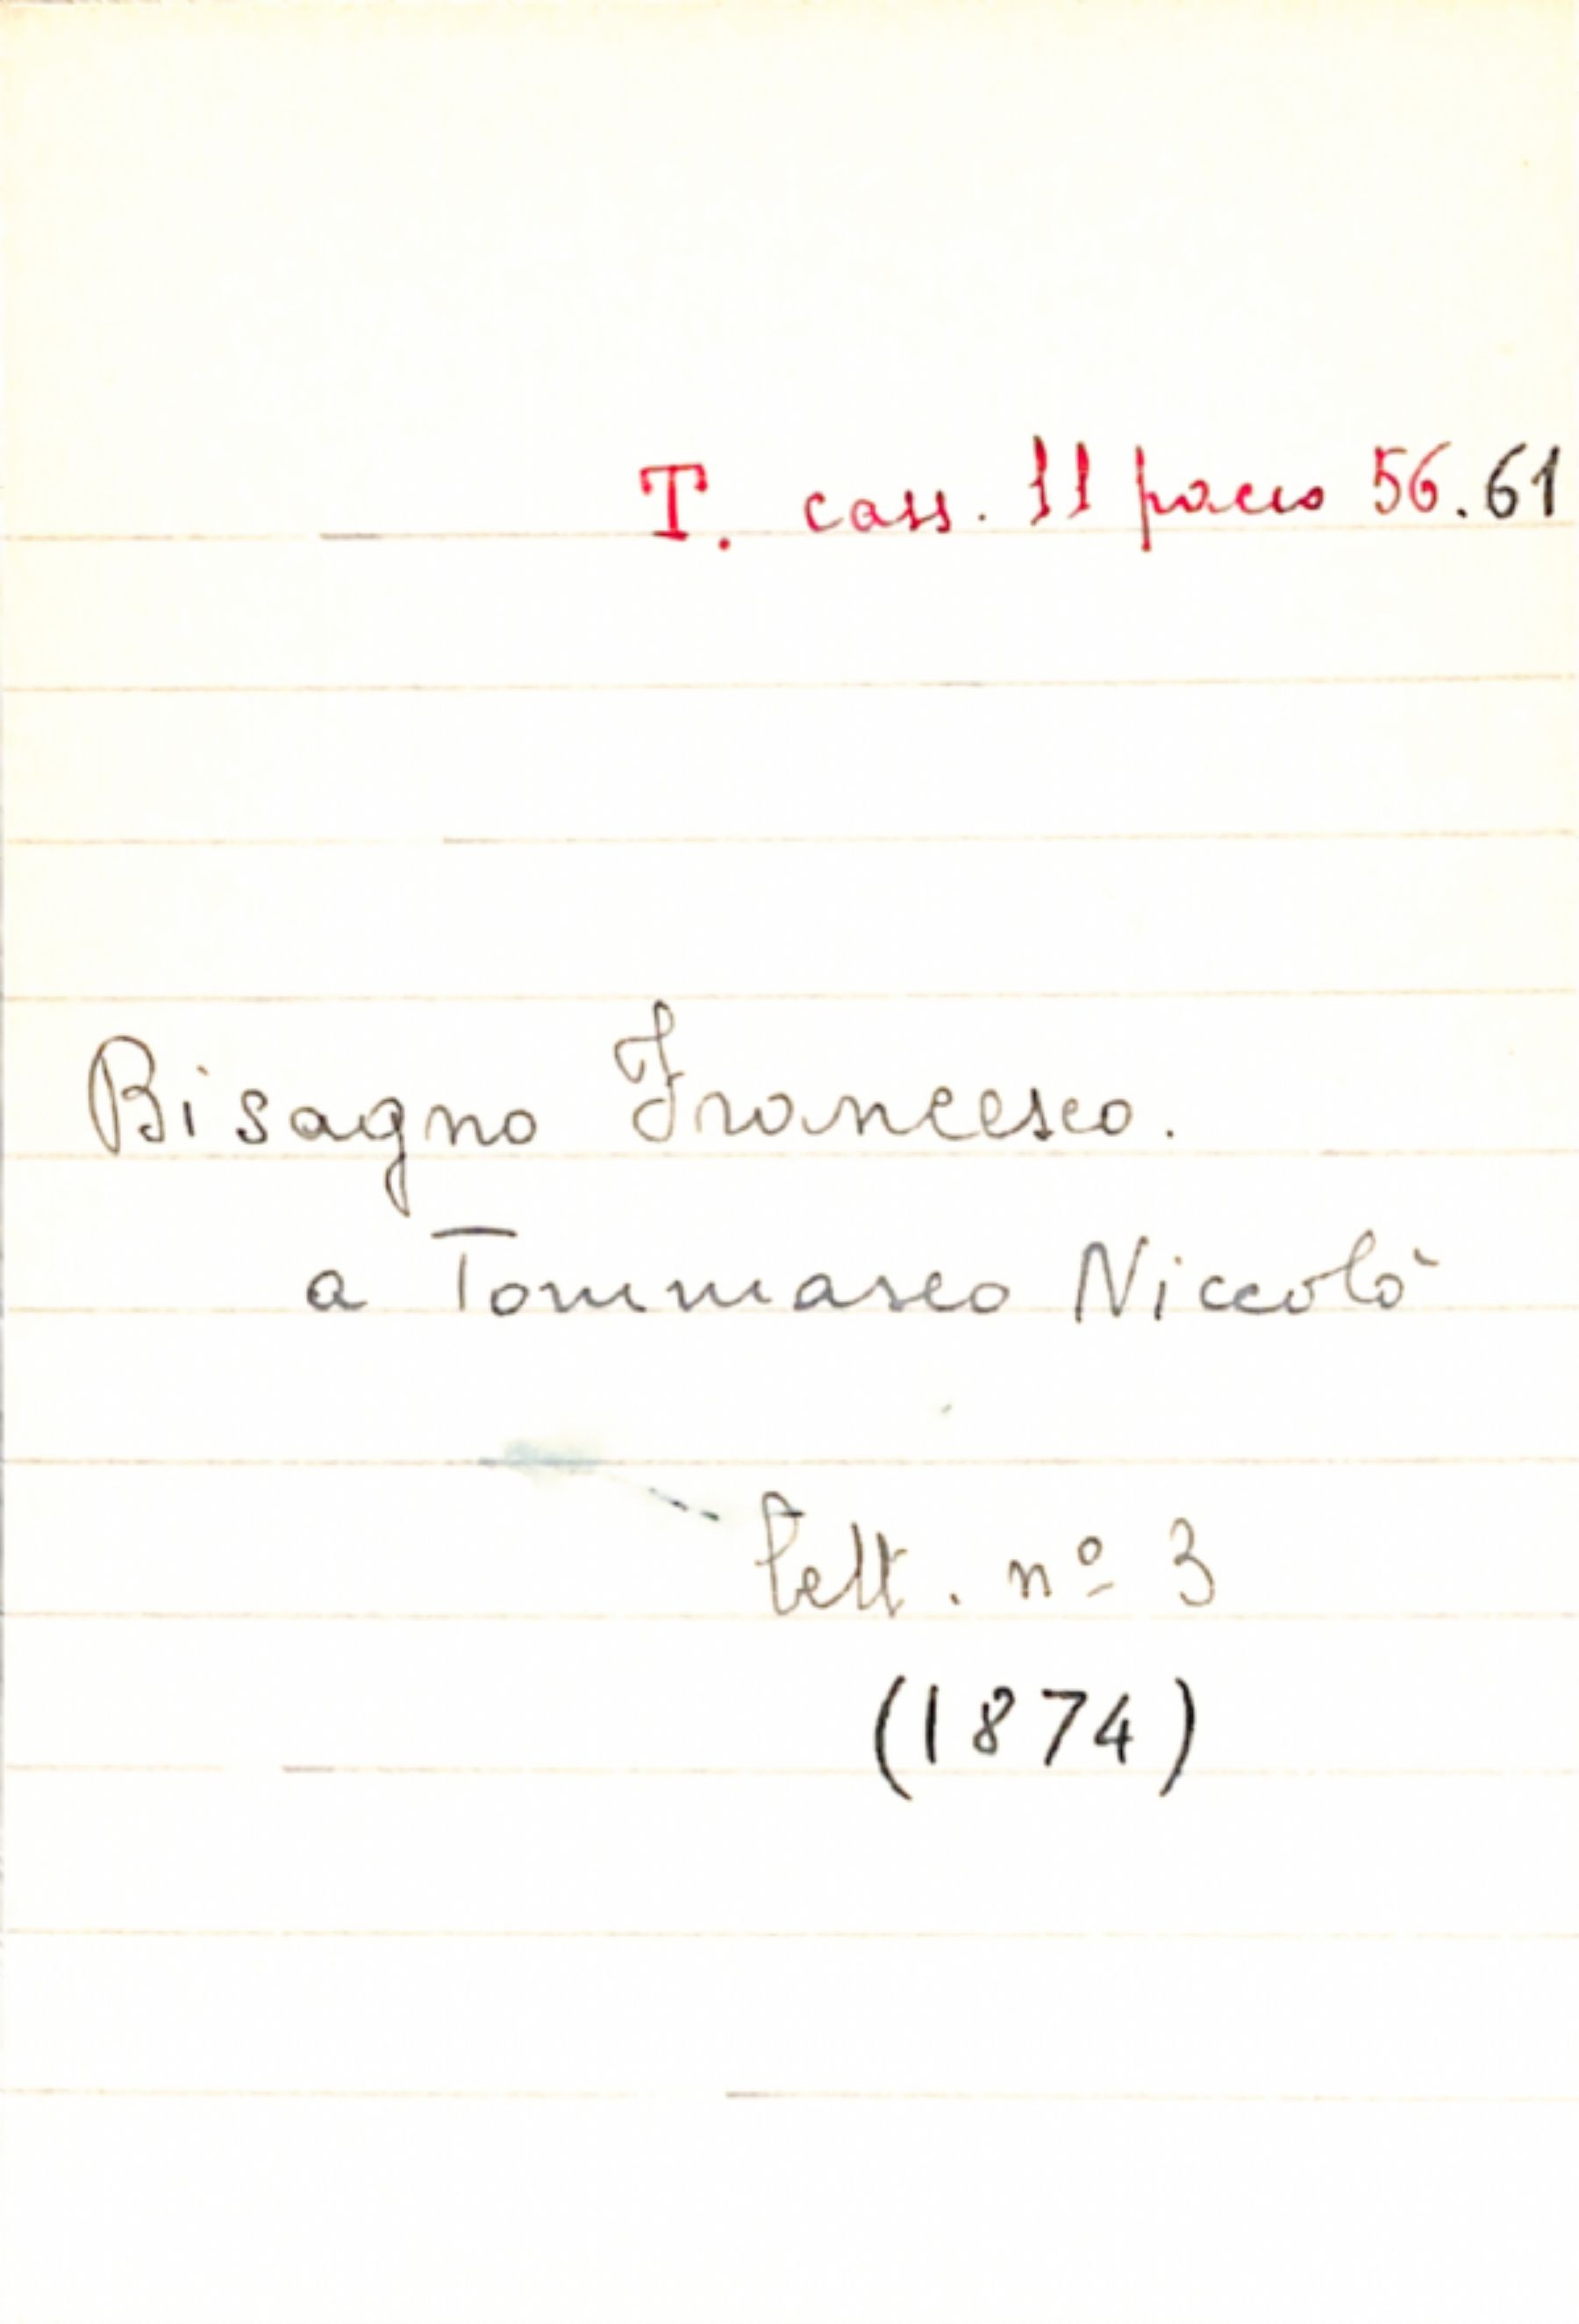 T. cass. 11 pacco 56.61
Bisagno Francesco.
a Tommaseo Niccolò
lett. nº 3
(1874)